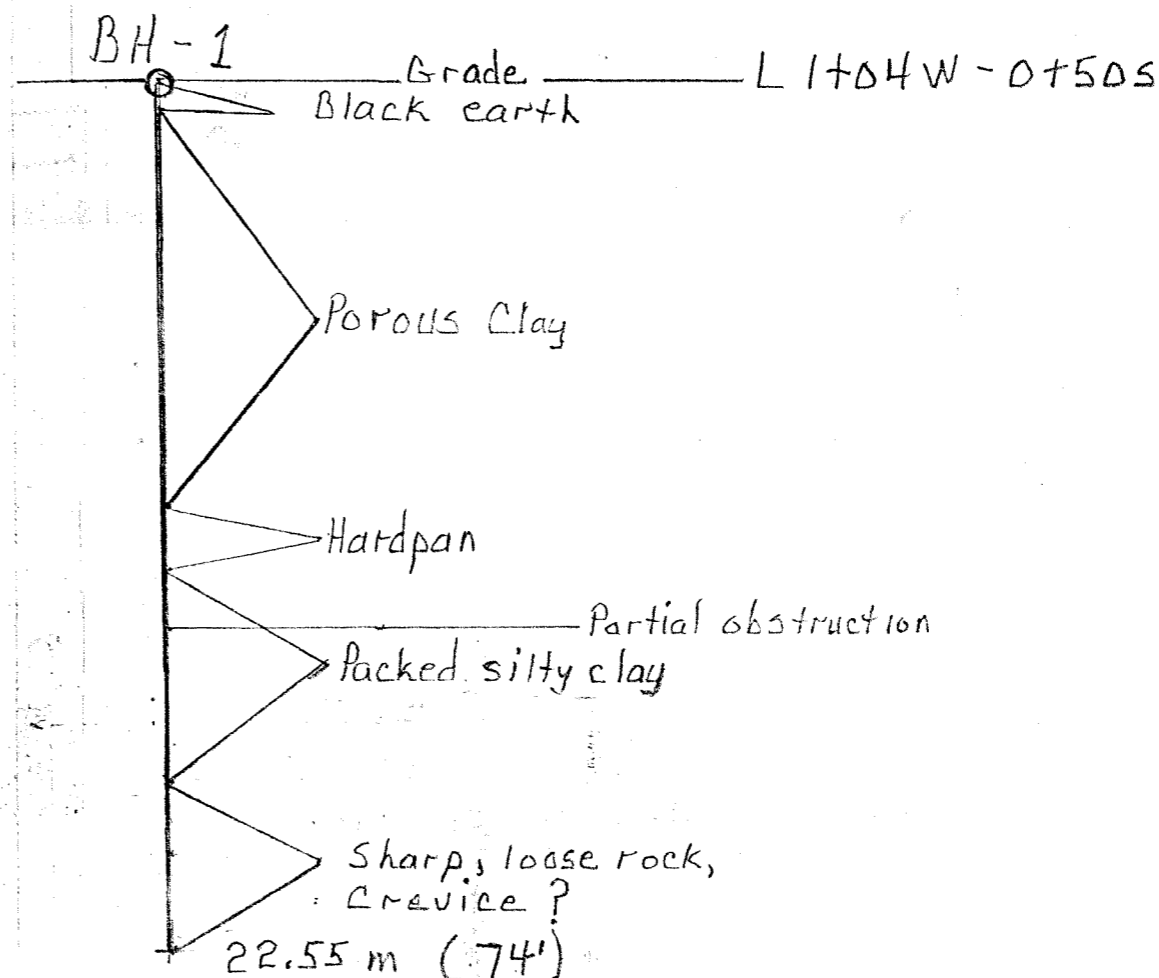 BH-1
Grade L 1+04W-0+50S
Black earth
Porous Clay
Hardpan
Partial obstruction
Packed silty clay
Sharp, loose rock,
Crevice?
22.55 m (74')